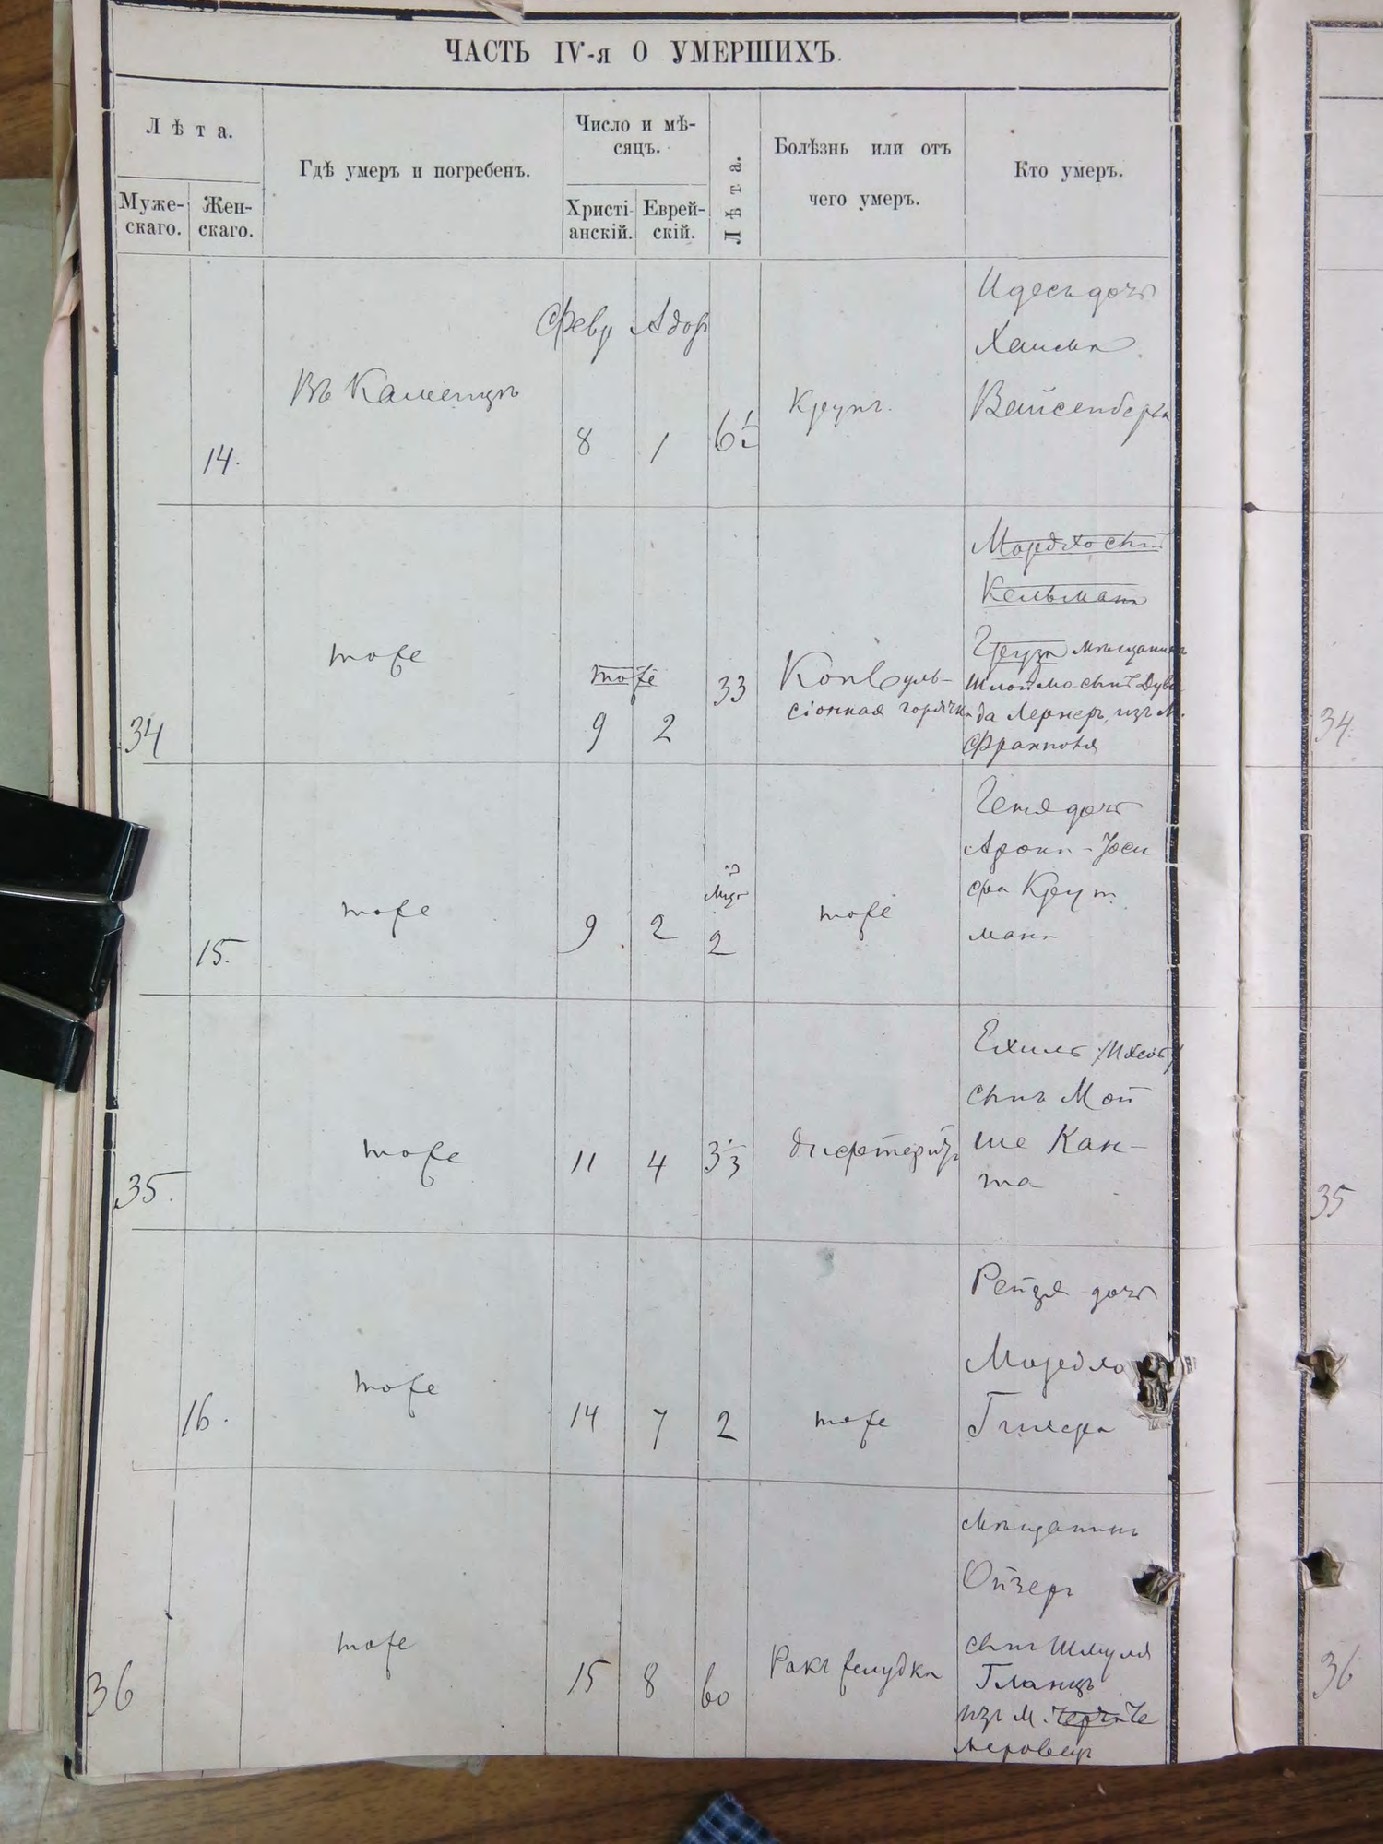 ЧАСТЬ IV-я О УМЕРШИХЪ.
Лѣта.
Муже-
скаго.
Жен-
скаго.
Гдѣ умеръ и погребенъ.
Число и мѣ-
сяцъ.
Христі-
анскій.
Еврей-
скій.
Лѣта.
Болѣзнь или отъ
чего умеръ.
Кто умеръ.
14.
Въ Каменцѣ
Февр Адор
8
1
6½
Крупъ.
Идесь дочь
Хаима
Вайсенберга
34
тоже
тоже
9
2
33
Конвуль-
сіонная горячка
Мордхо сынъ
Кельмана
мѣщанинъ
Шлойма сынъ Дуви
да Лернеръ, изъ м.
Фрамполя
15.
тоже
9
2
мѣс
2
тоже
Геня дочь
Аронъ-Йоси
фа Крут
ман
35.
тоже
11
4
3⅓
дифтеритъ
Ехиль /Ихель/
сынъ Мой
ше Кан-
та
16.
тоже
14
7
2
тоже
Рейзя дочь
Мордхо
36
тоже
15
8
60
Ракъ желудка
Мѣщанинъ
Ойзеръ
сынъ Шмуля
Гланцъ
изъ м. Че
меровецъ
34.
35
36